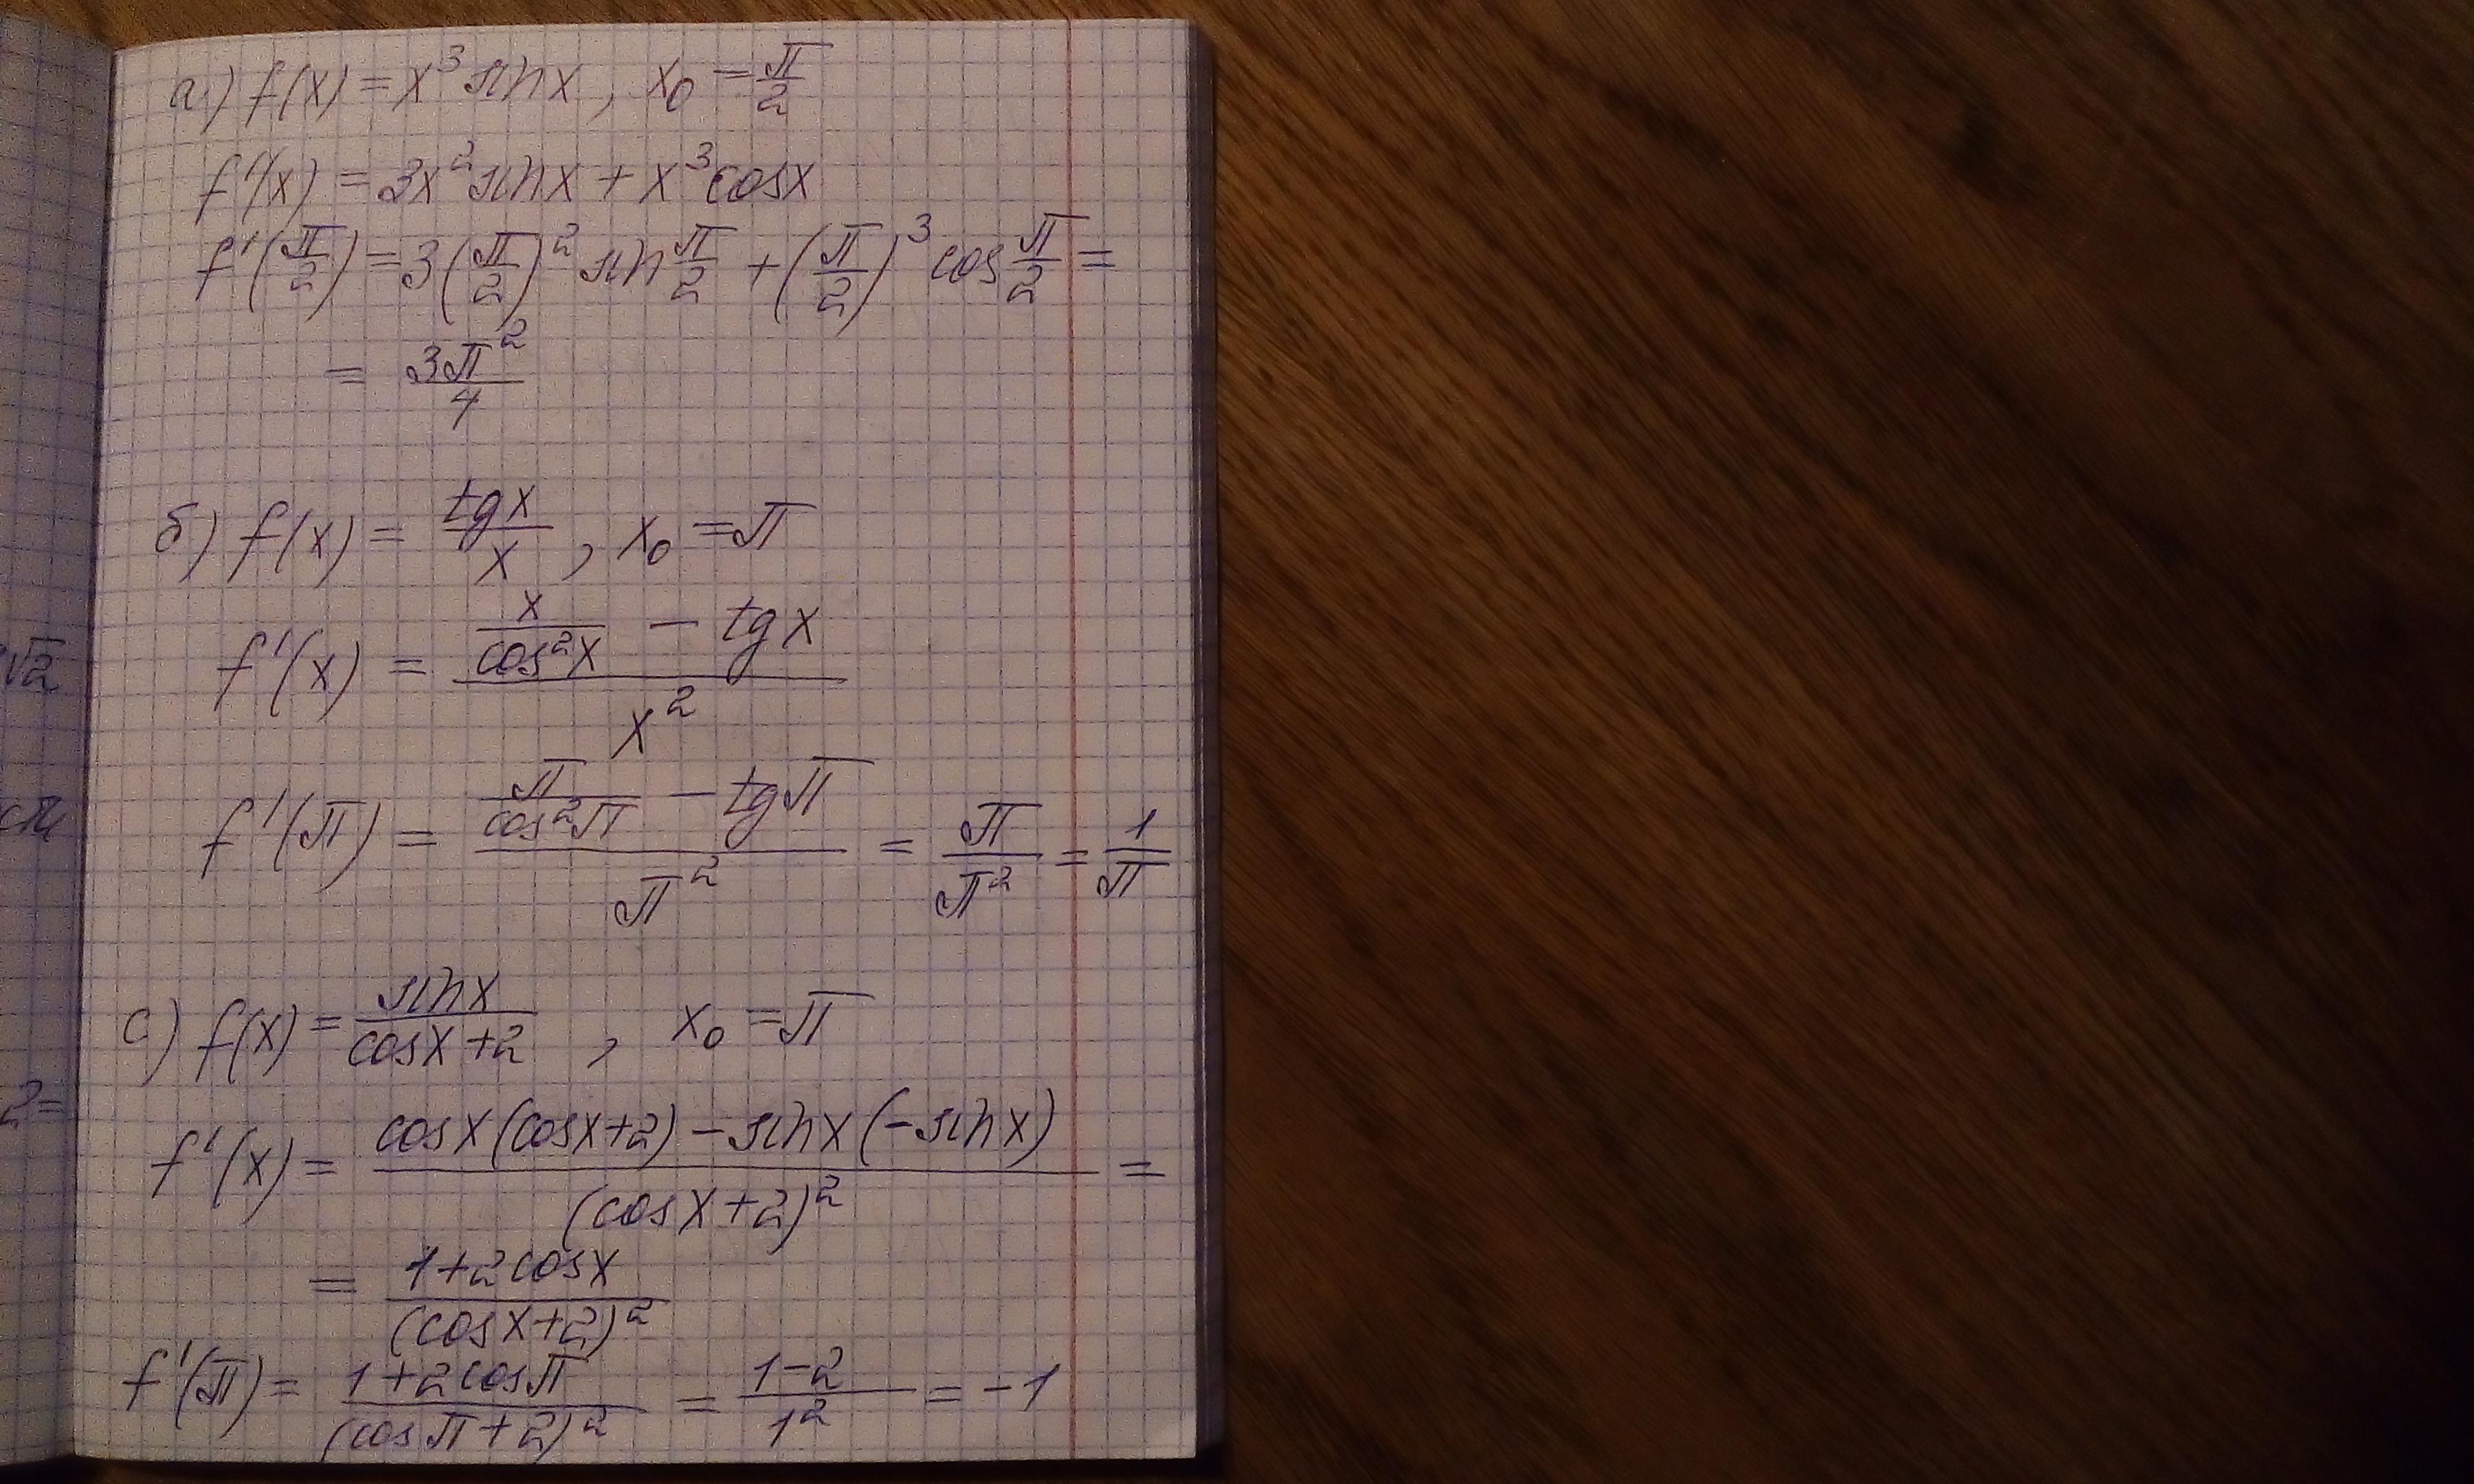 а) f(x) = x³ sin x , x₀ = π/2
f'(x) = 3x² sin x + x³ cos x
f'(π/2) = 3(π/2)² sin π/2 + (π/2)³ cos π/2 =
= 3π²/4
б) f(x) = tg x / x , x₀ = π
f'(x) = (x/cos²x − tg x) / x²
f'(π) = (π/cos²π − tg π) / π² = π/π² = 1/π
c) f(x) = sin x / (cos x + 2) , x₀ = π
f'(x) = (cos x (cos x + 2) − sin x (− sin x)) / (cos x + 2)² =
= (1 + 2 cos x) / (cos x + 2)²
f'(π) = (1 + 2 cos π) / (cos π + 2)² = (1 − 2) / 1² = −1
√2
2=